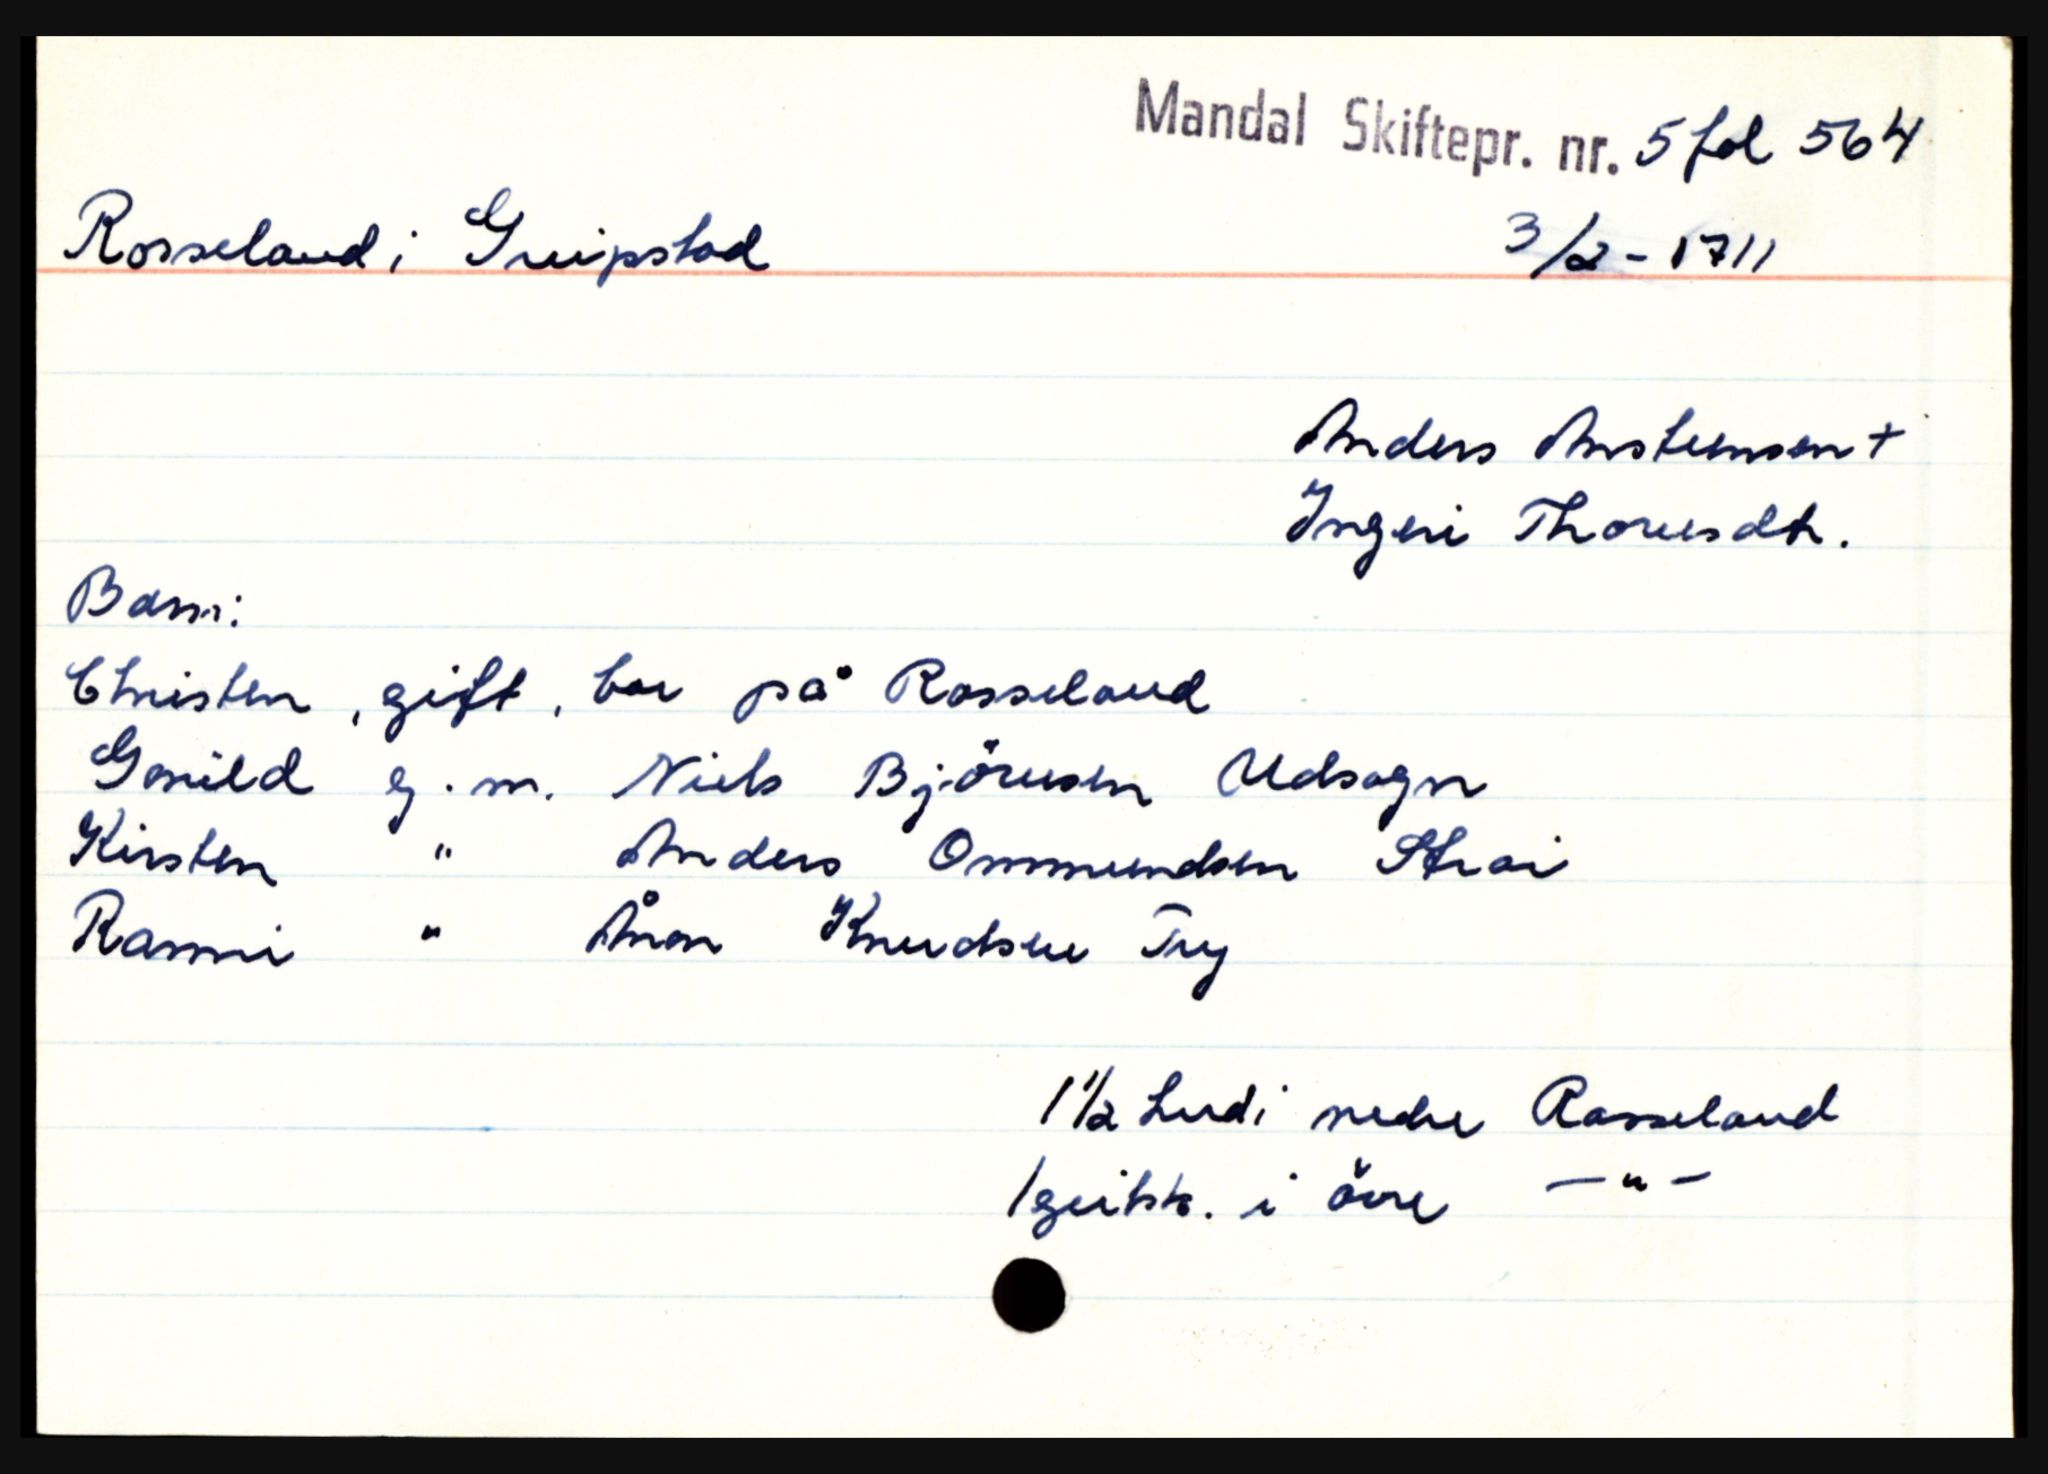 Mandal Skiftepr. nr. 5 fol 564
Rosseland i Greipstad
3/2 - 1711
Anders Anstensen +
Ingeri Thoresdtr.
Barn:
Christen, gift, bor på Rosseland
Gunild g. m. Niels Björnsen Udsogn
Kirsten " Anders Ommundsen Strai
Ranni " Ånon Knudsen Try
1 1/2 hud i nedre Rosseland
1 geitsk. i övre - " -